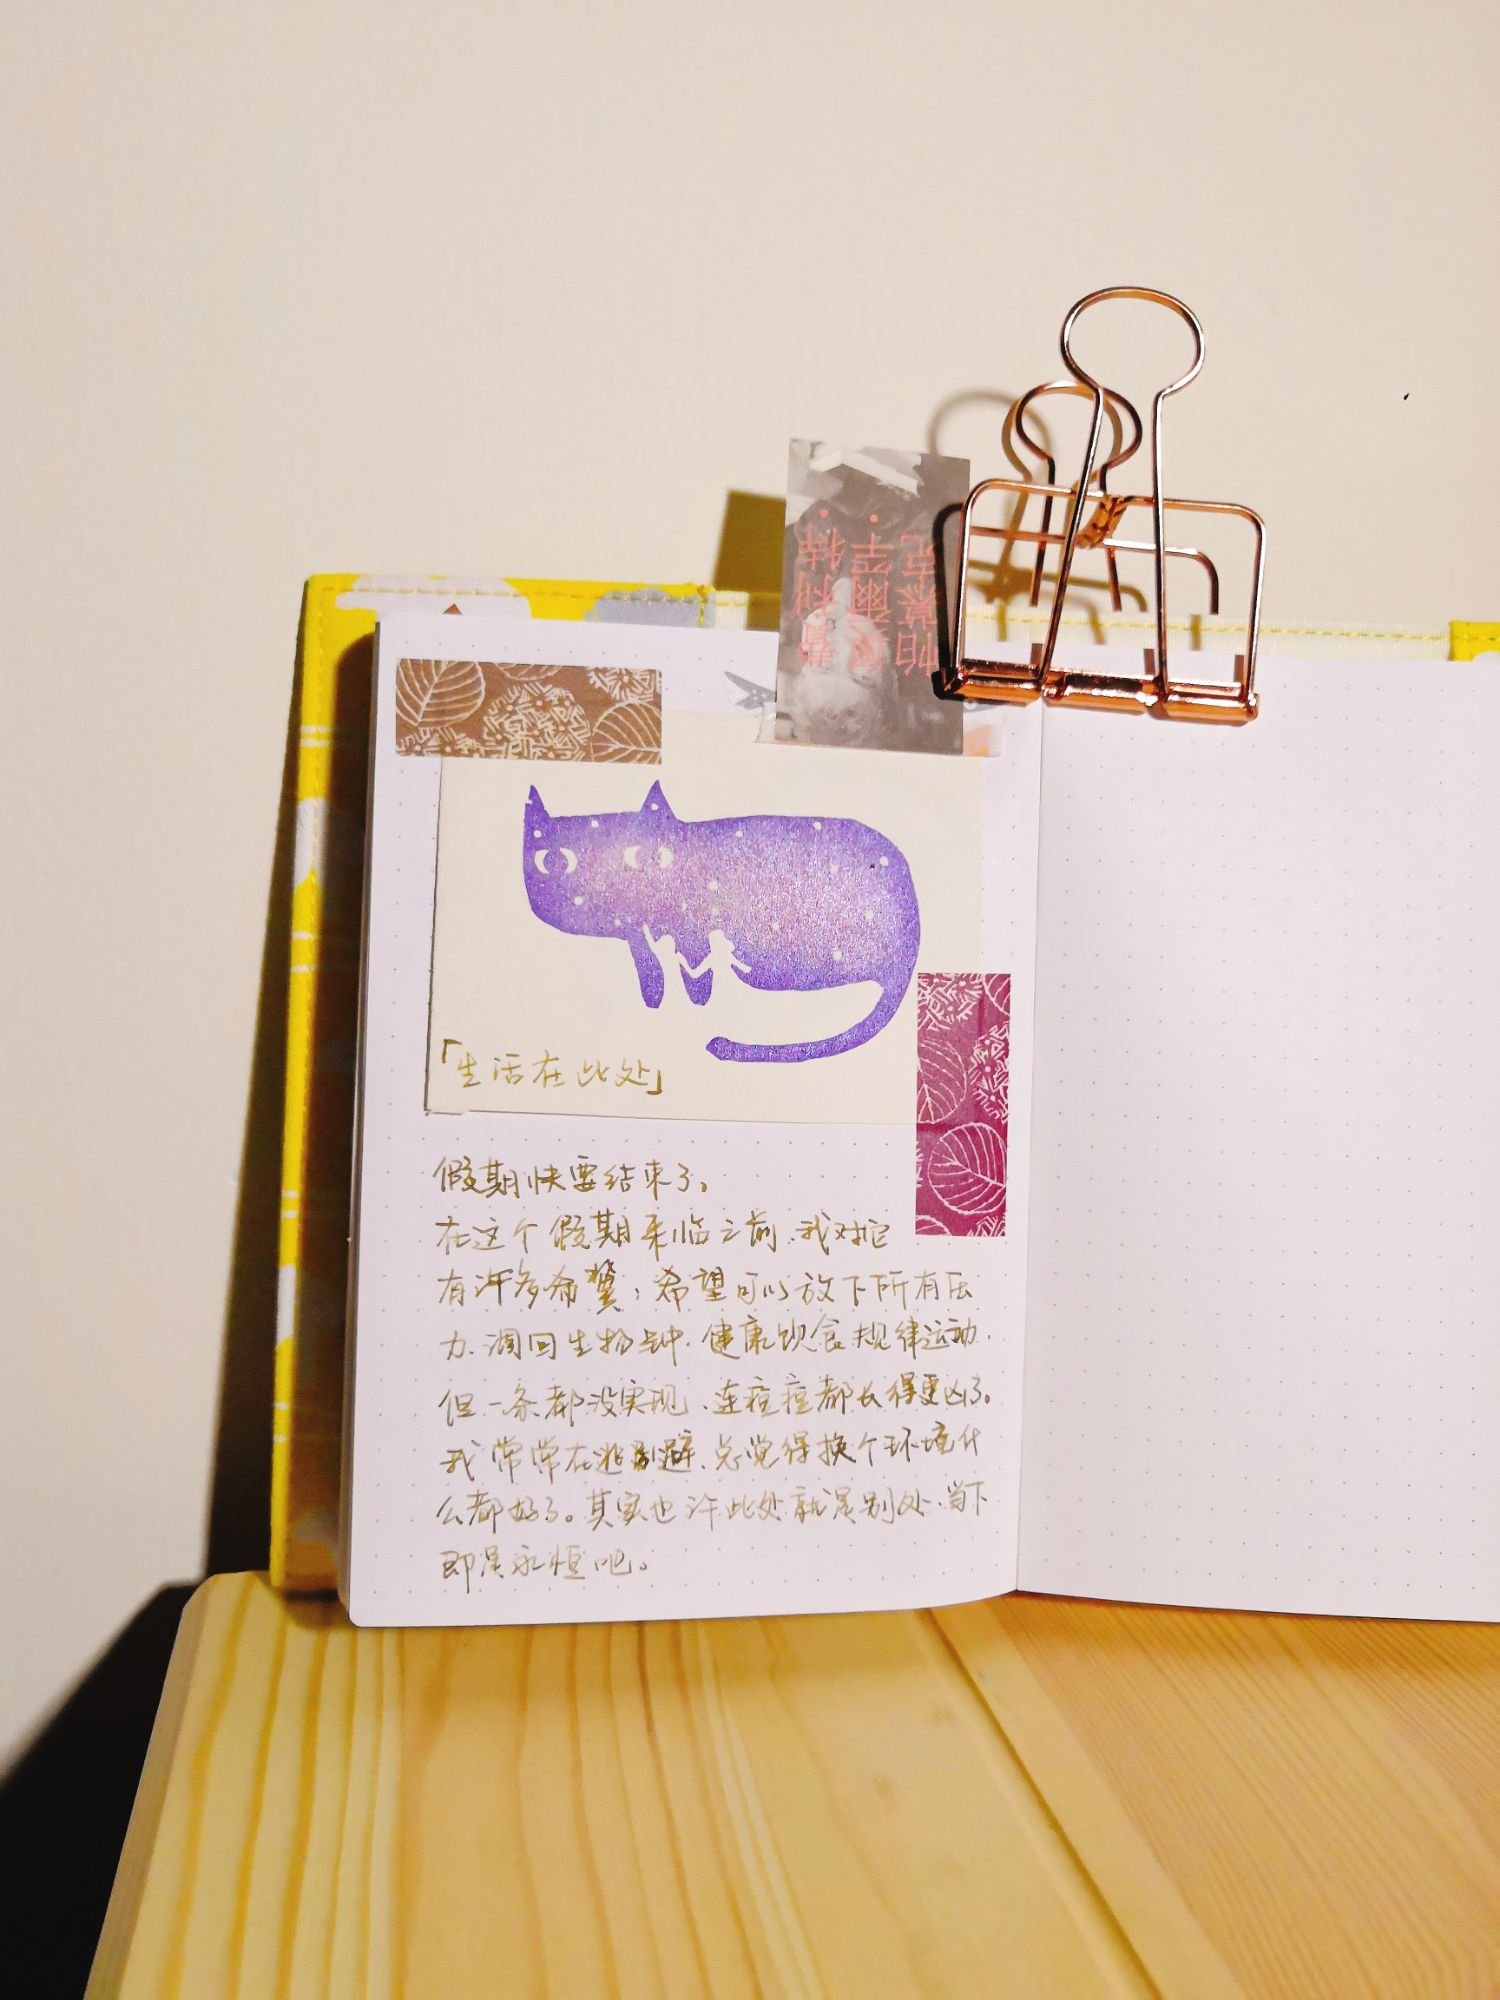 「生活在此处」
假期快要结束了。
在这个假期来临之前，我对它
有许多希冀：希望可以放下所有压
力、调回生物钟、健康饮食规律运动，
但一条都没实现，连痘痘都长得更凶了。
我常常在逃避，总觉得换个环境什
么都好了。其实也许此处就是别处，当下
即是永恒吧。